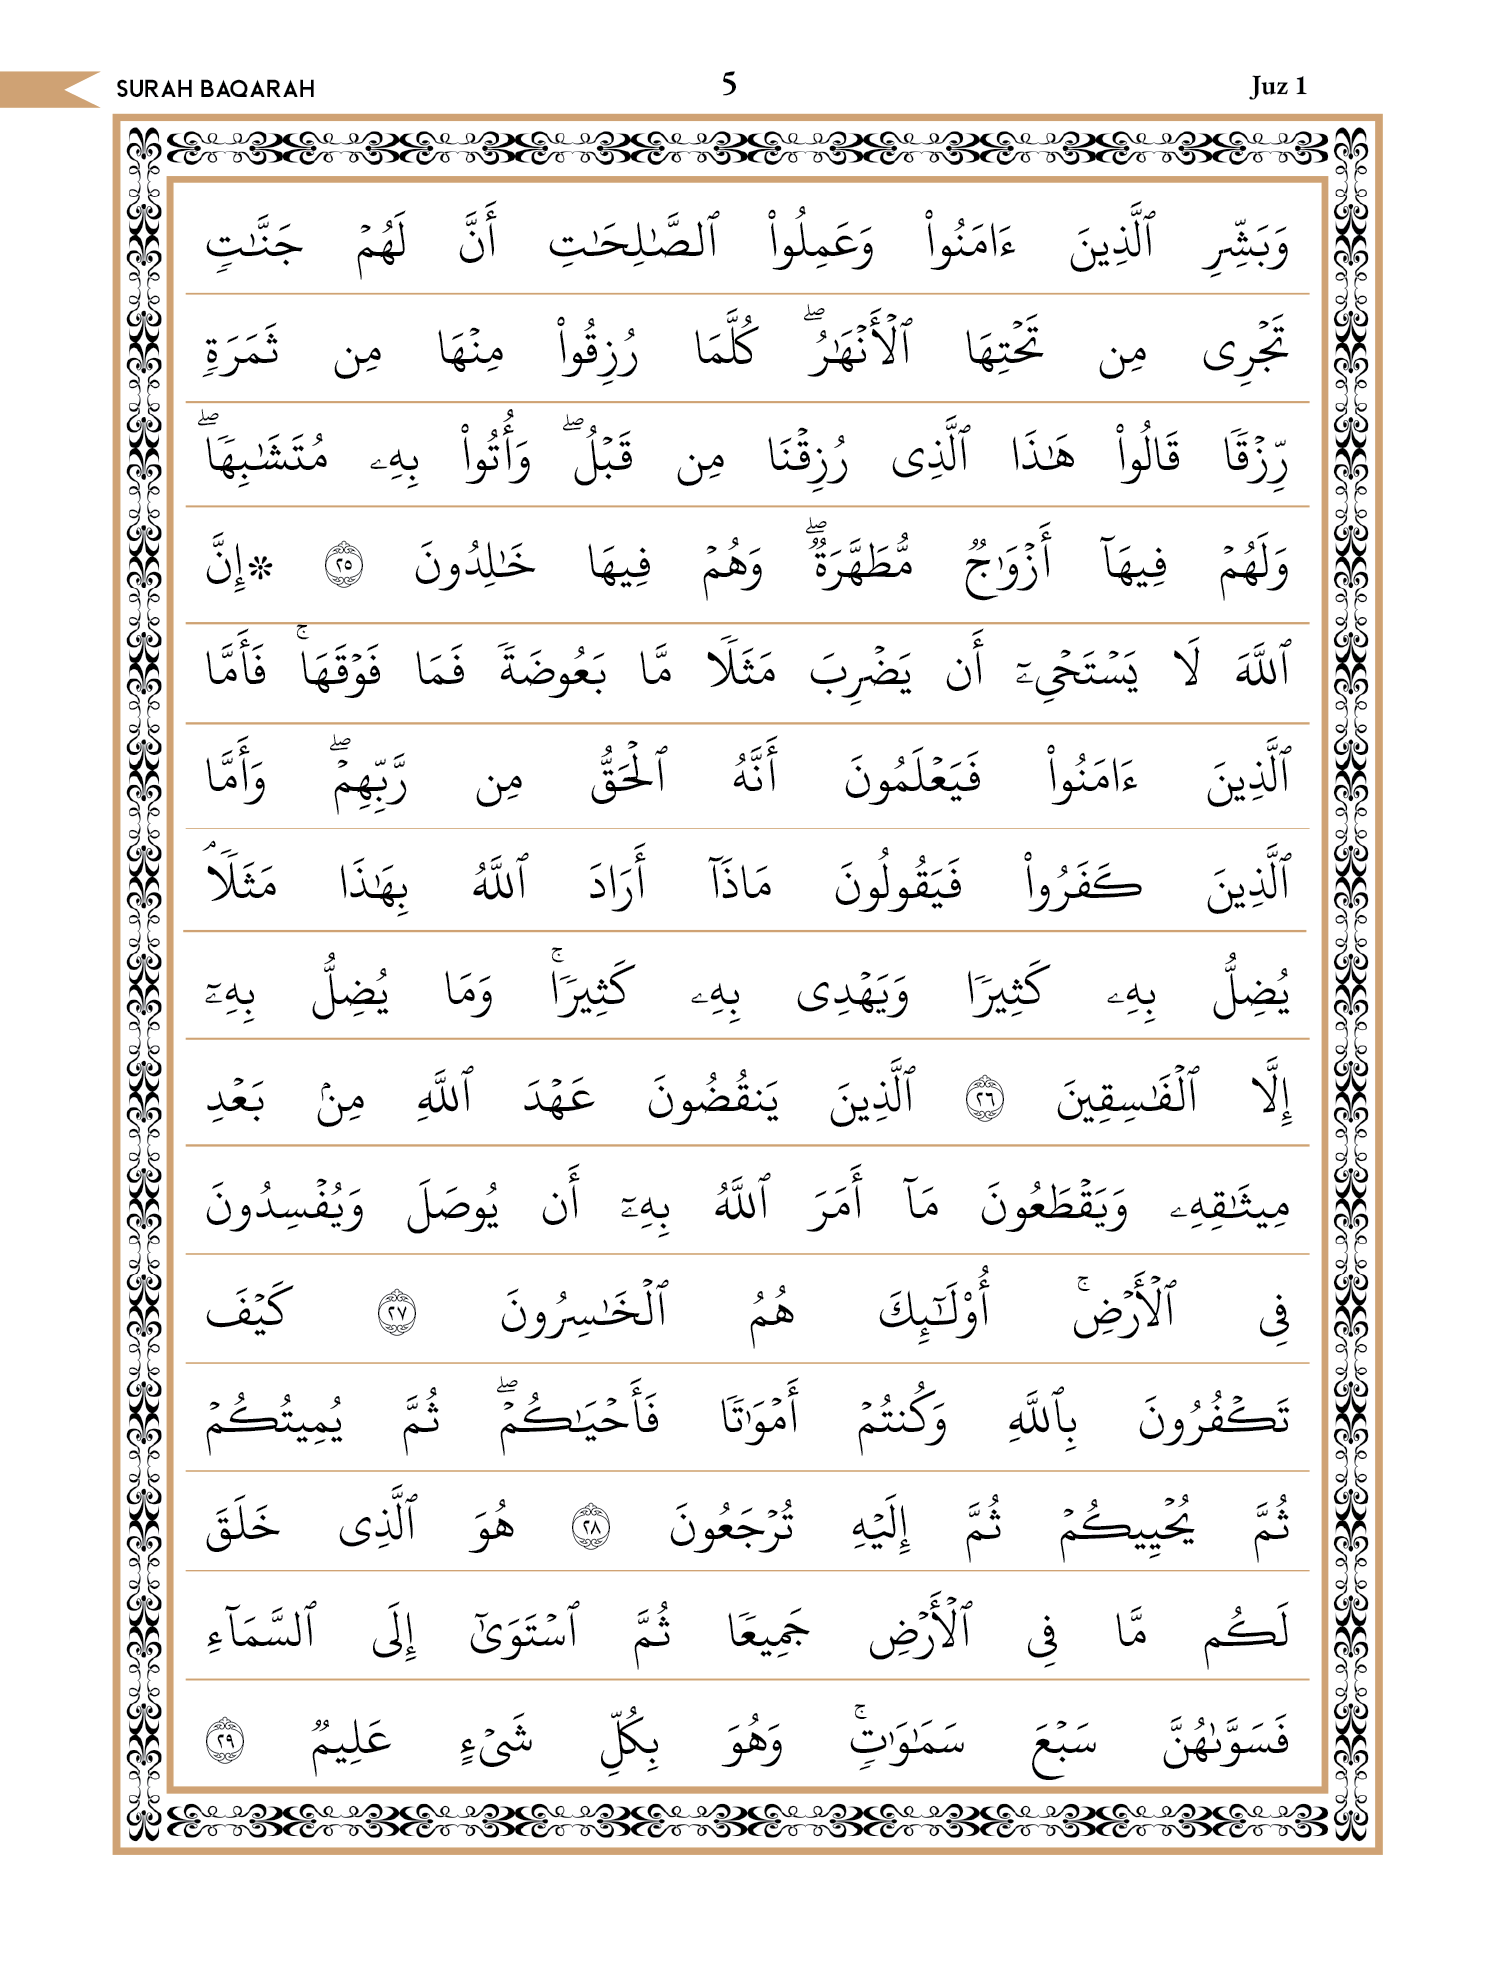 SURAH BAQARAH 5 Juz 1
وَبَشِّرِ ٱلَّذِينَ ءَامَنُوا۟ وَعَمِلُوا۟ ٱلصَّـٰلِحَـٰتِ أَنَّ لَهُمۡ جَنَّـٰتٖ
تَجۡرِی مِن تَحۡتِهَا ٱلۡأَنۡهَـٰرُۖ كُلَّمَا رُزِقُوا۟ مِنۡهَا مِن ثَمَرَةٖ
رِّزۡقٗا قَالُوا۟ هَـٰذَا ٱلَّذِی رُزِقۡنَا مِن قَبۡلُۖ وَأُتُوا۟ بِهِۦ مُتَشَـٰبِهٗاۖ
وَلَهُمۡ فِیهَاۤ أَزۡوَ ٰ⁠جٞ مُّطَهَّرَةٞۖ وَهُمۡ فِیهَا خَـٰلِدُونَ ٢٥ ۞إِنَّ
ٱللَّهَ لَا یَسۡتَحۡیِۦۤ أَن یَضۡرِبَ مَثَلٗا مَّا بَعُوضَةٗ فَمَا فَوۡقَهَاۚ فَأَمَّا
ٱلَّذِینَ ءَامَنُوا۟ فَیَعۡلَمُونَ أَنَّهُ ٱلۡحَقُّ مِن رَّبِّهِمۡۖ وَأَمَّا
ٱلَّذِینَ كَفَرُوا۟ فَیَقُولُونَ مَاذَاۤ أَرَادَ ٱللَّهُ بِهَـٰذَا مَثَلٗاۘ
یُضِلُّ بِهِۦ كَثِیرٗا وَیَهۡدِی بِهِۦ كَثِیرٗاۚ وَمَا یُضِلُّ بِهِۦۤ
إِلَّا ٱلۡفَـٰسِقِینَ ٢٦ ٱلَّذِینَ یَنقُضُونَ عَهۡدَ ٱللَّهِ مِنۢ بَعۡدِ
مِیثَـٰقِهِۦ وَیَقۡطَعُونَ مَاۤ أَمَرَ ٱللَّهُ بِهِۦۤ أَن یُوصَلَ وَیُفۡسِدُونَ
فِی ٱلۡأَرۡضِۚ أُو۟لَـٰۤىِٕكَ هُمُ ٱلۡخَـٰسِرُونَ ٢٧ كَیۡفَ
تَكۡفُرُونَ بِٱللَّهِ وَكُنتُمۡ أَمۡوَ ٰ⁠تٗا فَأَحۡیَـٰكُمۡۖ ثُمَّ یُمِیتُكُمۡ
ثُمَّ یُحۡیِیكُمۡ ثُمَّ إِلَیۡهِ تُرۡجَعُونَ ٢٨ هُوَ ٱلَّذِی خَلَقَ
لَكُم مَّا فِی ٱلۡأَرۡضِ جَمِیعٗا ثُمَّ ٱسۡتَوَىٰۤ إِلَى ٱلسَّمَاۤءِ
فَسَوَّىٰهُنَّ سَبۡعَ سَمَـٰوَ ٰ⁠تٖۚ وَهُوَ بِكُلِّ شَیۡءٍ عَلِیمٞ ٢٩